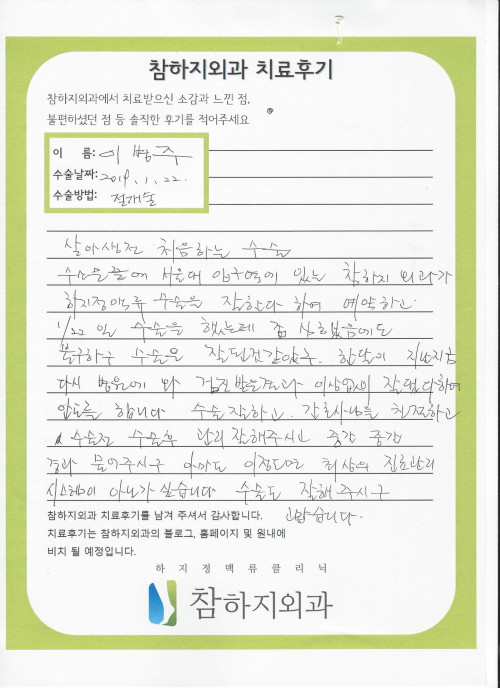 참하지외과 치료후기
참하지외과에서 치료받으신 소감과 느낀 점,
불편하셨던 점 등 솔직한 후기를 적어주세요
이 름: 이병주
수술날짜: 2019. 1. 22.
수술방법: 절개술
살아생전 처음하는 수술
수소문끝에 서울대 입구역에 있는 참하지 외과가
하지정맥류 수술을 잘한다 하여 예약하고
1/22일 수술을 했는데 좀 심했음에도
불구하구 수술은 잘된것같았구. 한달이 지난지금
다시 병원에 와 검진받을결과 이상없이 잘됐다하여
안도를 합니다 수술잘하고. 간호사님들 친절하고
수술전 수술후 관리 잘해주시고 중간 중간
경과 물어주시구 아마도 이정도면 최상의 진료관리
시스템이 아닌가 싶습니다 수술도 잘해 주시구
고맙습니다.
참하지외과 치료후기를 남겨 주셔서 감사합니다.
치료후기는 참하지외과의 블로그, 홈페이지 및 원내에
비치 될 예정입니다.
하지정맥류클리닉
참하지외과